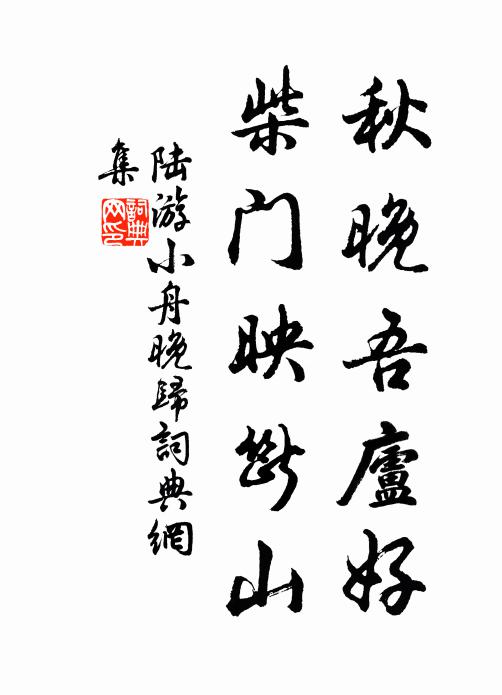 秋晚吾廬好
柴门映斷山
陆游小舟晚歸詞典網
集
詞典网印